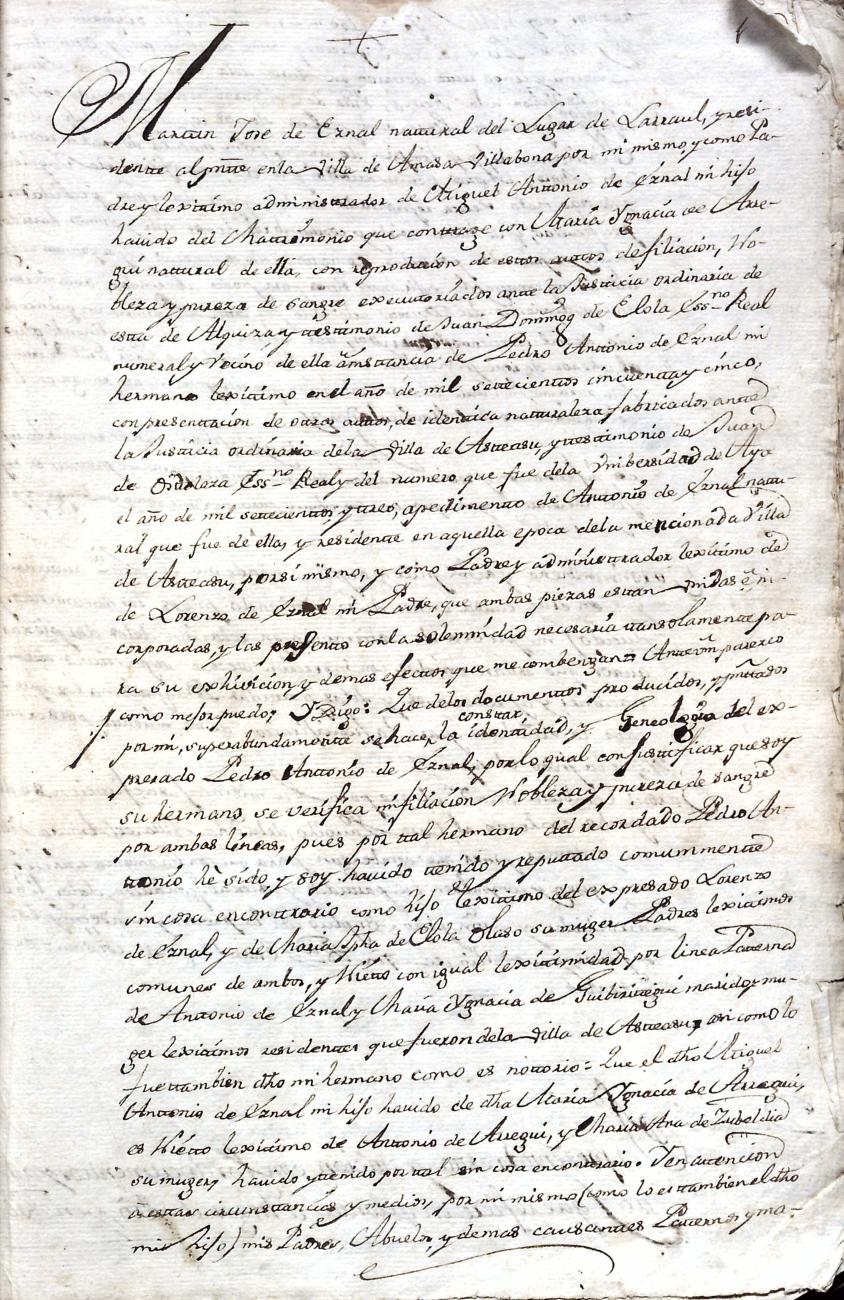 Martin Jose de Eznal natural del Lugar de Larraul, y resi-
dente al pnte en la Villa de Amasa Villabona por mi mismo y como Pa-
dre y lexitimo administrador de Miguel Antonio de Eznal mi hijo
havido del Matrimonio que contraxe con Maria Ygnacia de Arre-
gui nattural de ella, con reproducion de estos auttos de filiación, No-
bleza y pureza de sangre executtoriados ante la Justicia ordinaria de
esta de Alquiza, y testimonio de Juan Domingo de Elola Essno Real
numeral y Vecino de ella a instancia de Pedro Antonio de Eznal mi
hermano lexitimo en el año de mil settecienttos cincuenta y cinco,
con presenttación de otros auttos, de identica naturaleza fabricados antte
la Justicia ordinaria de la Villa de Asteasu, y testimonio de Juan
de Essno Real y del numero que fue dela Unibersidad de Aya
el año de mil settecienttos, y tres, a pedimento de Antonio de Eznal nattu-
ral que fue de ella, y residente en aquella epoca dela mencionada Villa
de Asteasu, por si mismo, y como Padre y administrador lexitimo de
de Lorenzo de Eznal mi Padre, que ambas piezas estan unidas e in-
corporadas, y las presento con la solemnidad necesaria tan solamente pa-
ra su exhivición, y demas efectos que me combengan: Ante Vm parezco
como mejor puedo, Y Digo: Que delos documentos producidos, y pnttados
constar,
por mi, superabundamente se hace, la identidad, y Geneología del ex-
presado Pedro Antonio de Eznal, por lo qual con justificar que soy
su hermano, se verifica mi filiación Nobleza y pureza de sangre
por ambas lineas, pues por ttal hermano del recordado Pedro An-
ttonio hè sido y soy, havido ttenido y reputtado comunmentte
sin cosa en contrario como hijo lexitimo del expresado Lorenzo
de Eznal, y de Maria Jpha de Elola Olaso su muger Padres lexitimos
comunes de ambos, y Nietto con igual lexitimidad por linea Patterna
de Anttonio de Eznal y Maria Ygnacia de marido y mu-
ger lexitimos residenttes que fueron dela Villa de Asteasu, asi como lo
fue ttambien dho mi hermano como es nottorio: Que el dho Miguel
Anttonio de Eznal mi hijo havido de dha Maria Ygnacia de Arregui,
es Nietto lexitimo de Anttonio de Arregui, y Maria Ana de Zubeldia
su muger, havido y ttenido por ttal sin cosa en contrario. Y en attencion
a esttas circunstancias y medios, por mi mismo (como lo es ttambien el dho
mi hijo) mis Padres, Abuelos, y demas causanttes Patternos y ma-